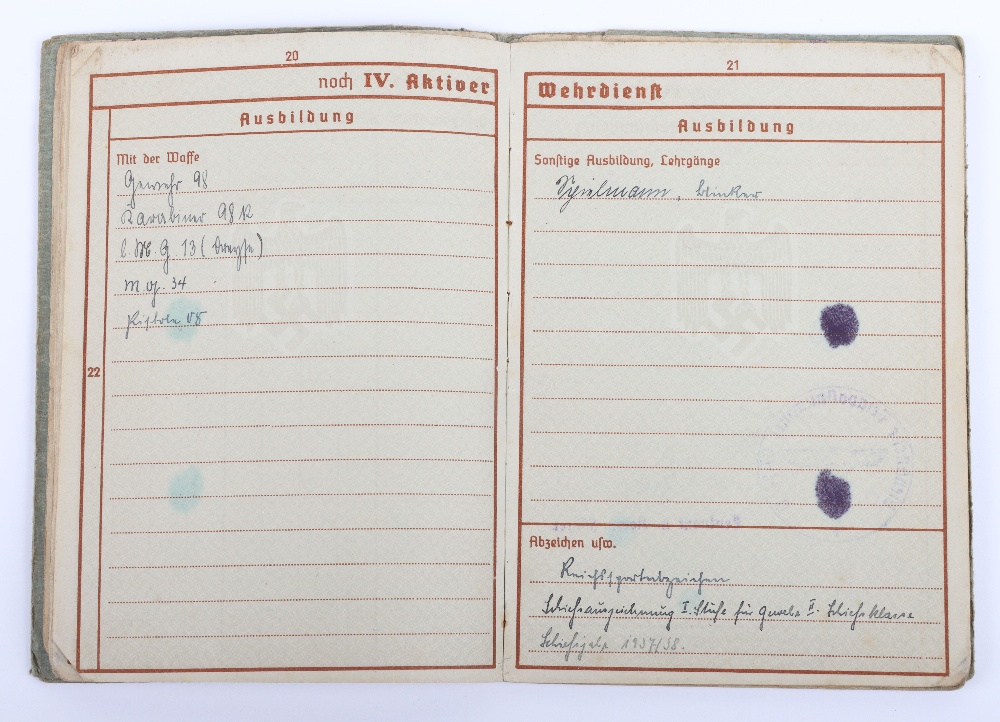 20
noch IV. Aktiver
Ausbildung
Mit der Waffe
Gewehr 98
Karabiner 98 K
l. M. G. 13 (Dreyse)
M.G. 34
Pistole 08
22
21
Wehrdienst
Ausbildung
Sonstige Ausbildung, Lehrgänge
Spielmann, Blinker
Abzeichen usw.
Reichssportabzeichen
Schießauszeichnung I. Stufe für Gewehr II. Schießklasse
Schießjahr 1937/38.